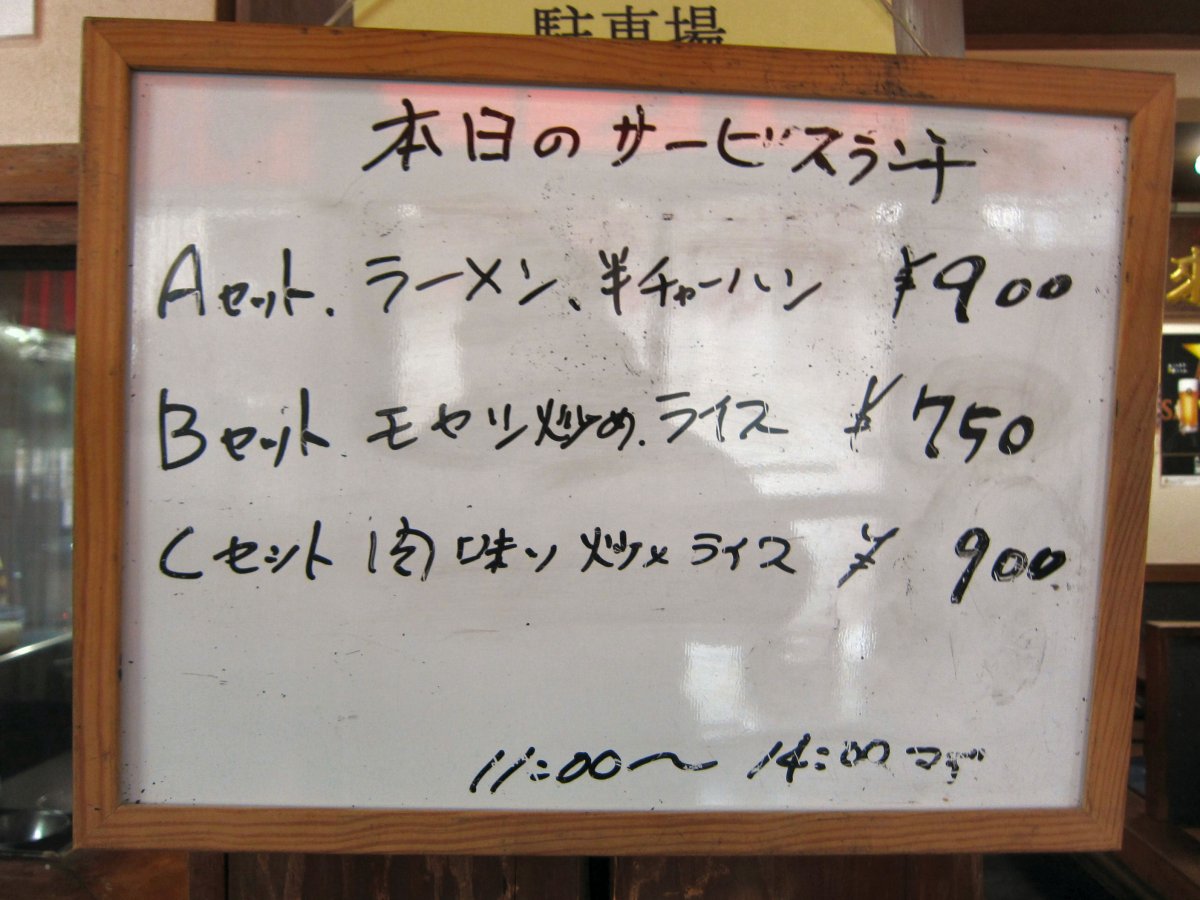 駐車場
本日のサービスランチ
Aセット. ラーメン、半チャーハン ¥900
Bセット モヤシ炒め. ライス ¥750
Cセット 肉味ソ炒メ ライス ¥900
11:00〜14:00マデ